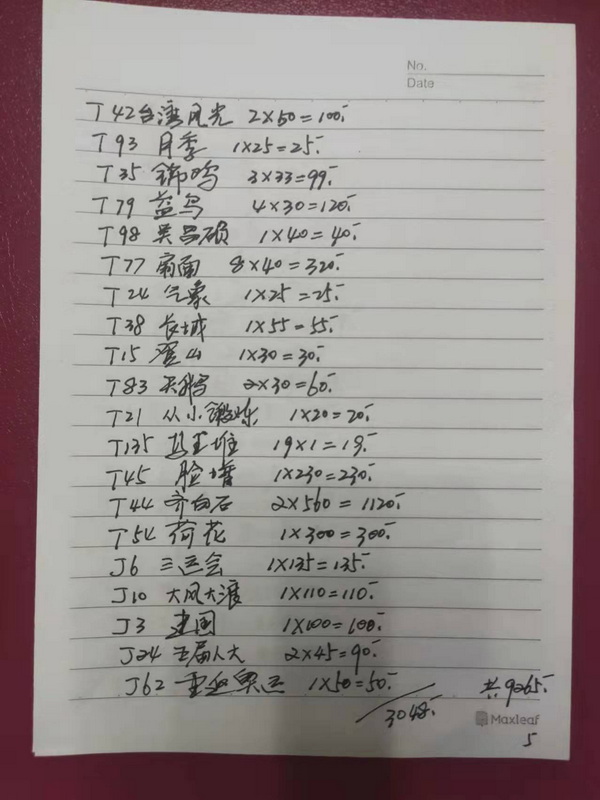 No.
Date
T42台湾风光 2×50=100.-
T93 月季 1×25=25.-
T35 锦鸡 3×33=99.-
T79 益鸟 4×30=120.-
T98 吴昌硕 1×40=40.-
T77 扇面 8×40=320.-
T24 气象 1×25=25.-
T38 长城 1×55=55.-
T15 登山 1×30=30.-
T83 天鹅 2×30=60.-
T21 从小锻炼 1×20=20.-
T135 马王堆 19×1=19.-
T45 脸谱 1×230=230.-
T44 齐白石 2×560=1120.-
T54 荷花 1×300=300.-
J6 三运会 1×135=135.-
J10 大风大渡 1×110=110.-
J3 建国 1×100=100.-
J24 五届人大 2×45=90.-
J62 重返奥运 1×50=50.- 共9265.-
3048.-
Maxleaf
5